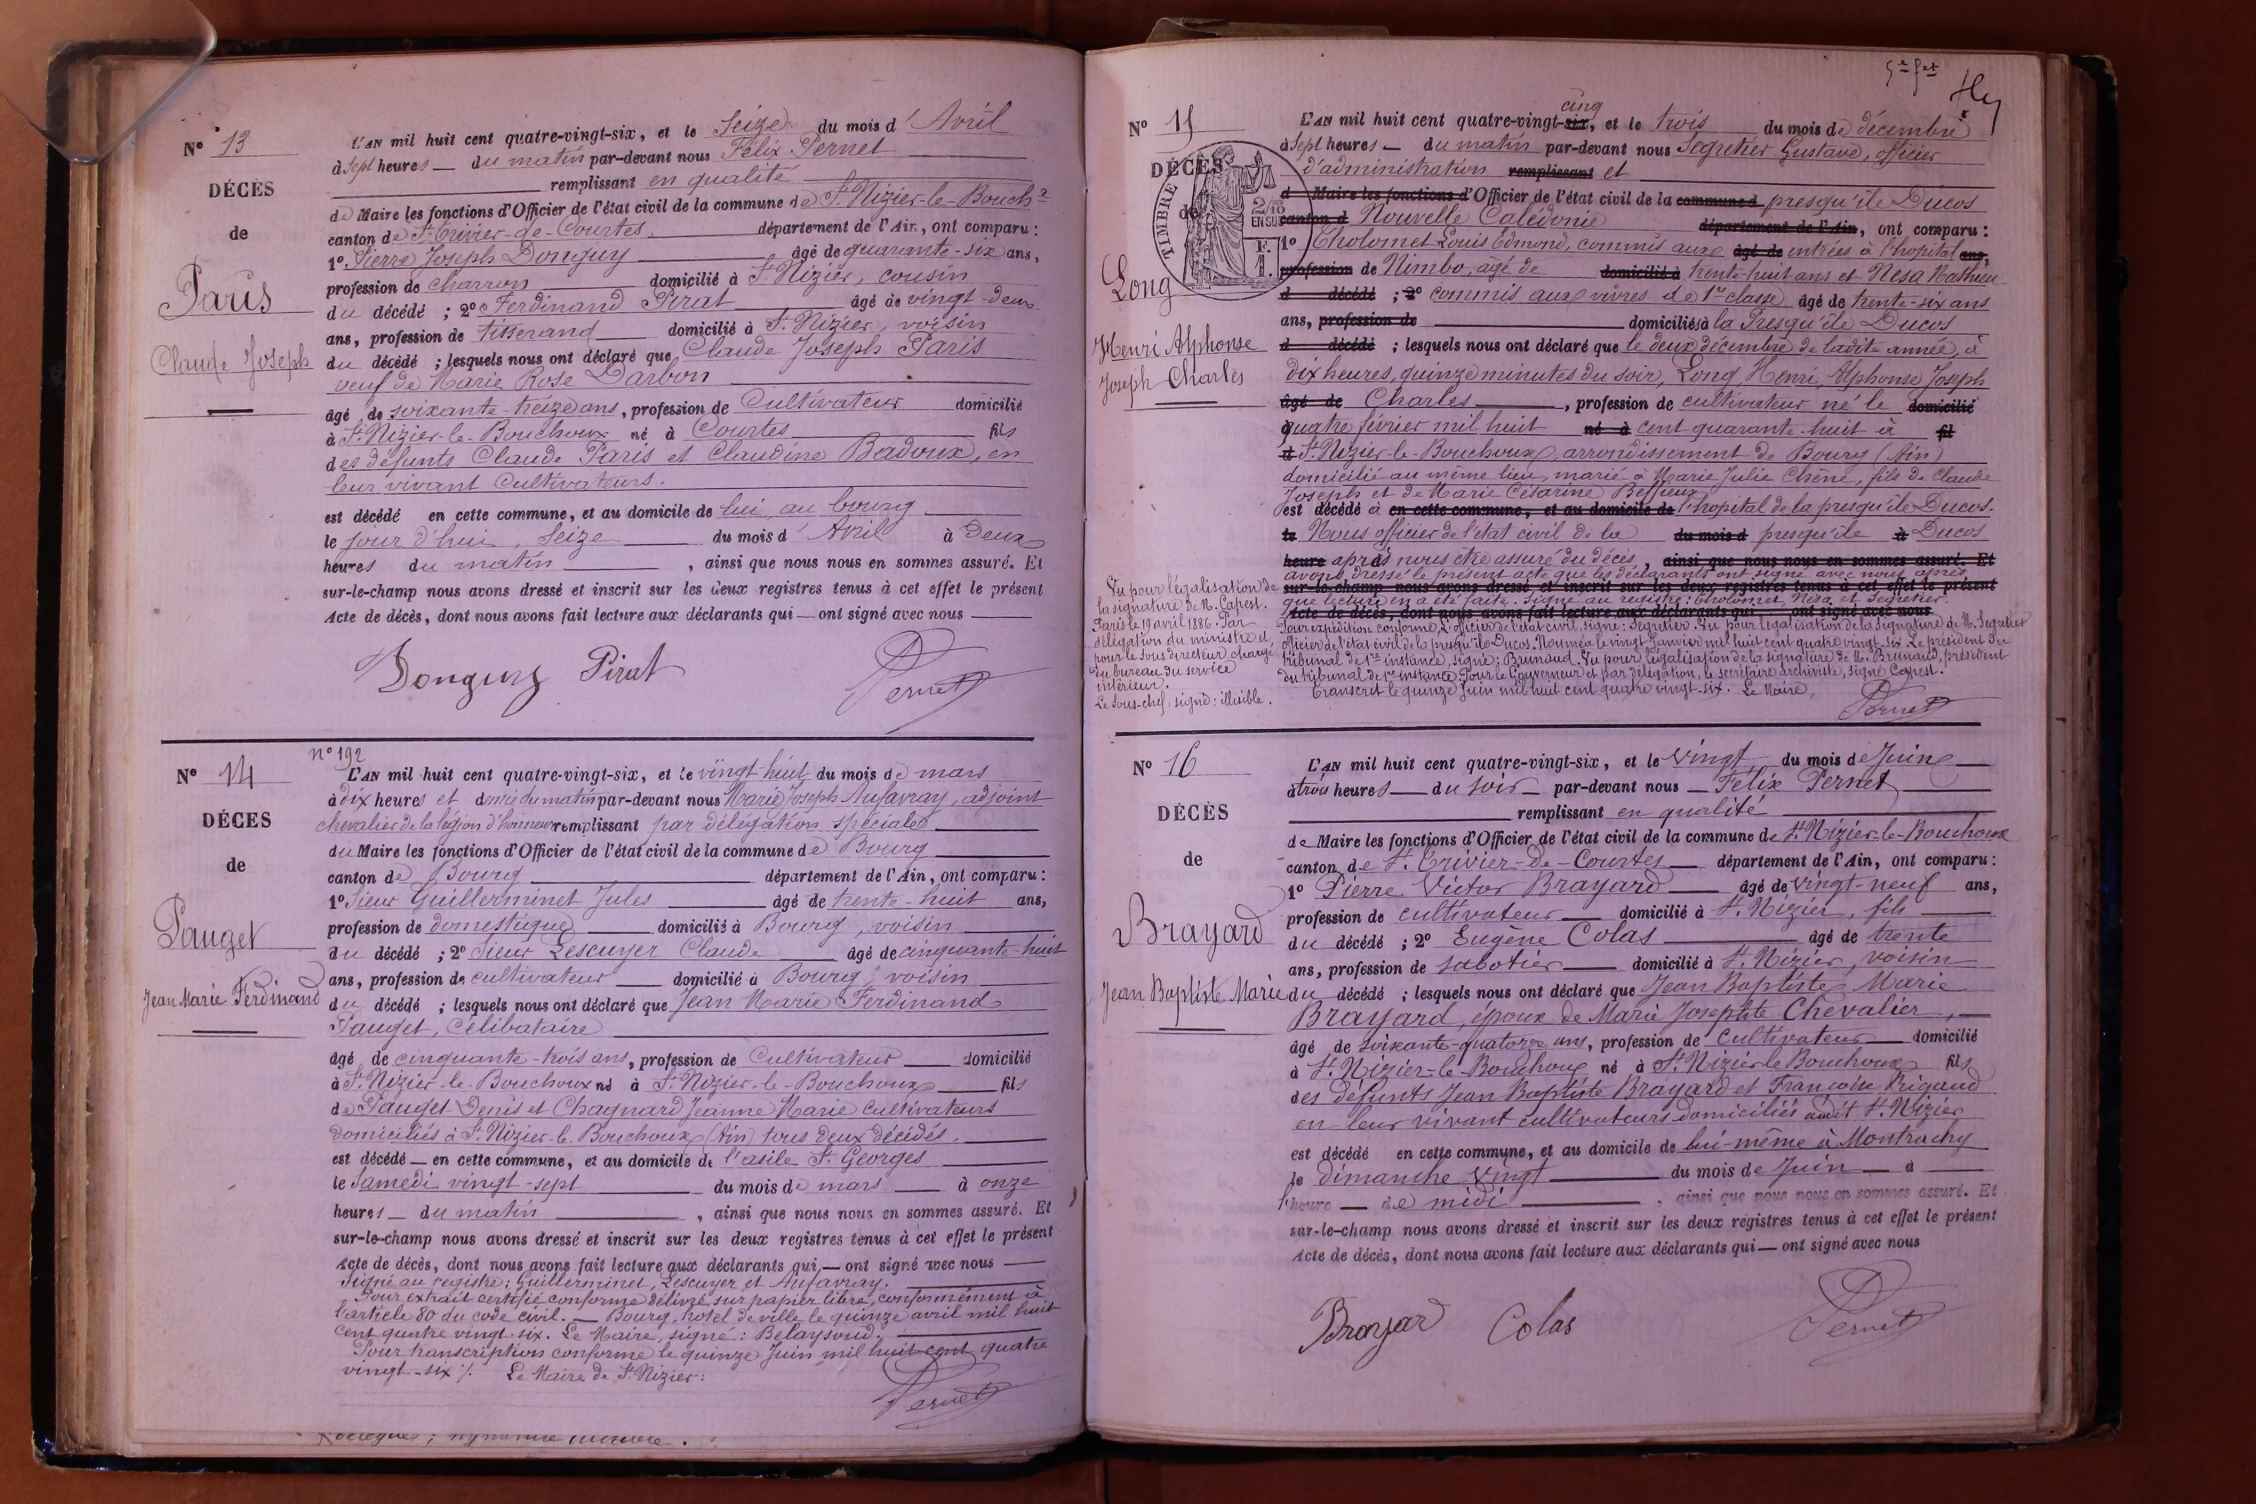 N° 13
DÉCÈS
de
Paris
Claude Joseph
L'AN mil huit cent quatre-vingt-six, et le Seize du mois d'Avril
à Sept heures du matin par-devant nous Félix Pernet
remplissant en qualité
de Maire les fonctions d'Officier de l'état civil de la commune de St Nizier-le-Bouchx
canton de St Trivier-de-Courtes, département de l'Ain, ont comparu :
1° Pierre Joseph Donguy âgé de quarante-six ans,
profession de charron domicilié à St Nizier, cousin
du décédé ; 2° Ferdinand Pirat âgé de vingt-deux
ans, profession de tisserand domicilié à St Nizier, voisin
du décédé ; lesquels nous ont déclaré que Claude Joseph Paris
veuf de Marie Rose Darbon
âgé de soixante-treize ans, profession de Cultivateur domicilié
à St Nizier-le-Bouchoux né à Courtes fils
des défunts Claude Paris et Claudine Badoux, en
leur vivant Cultivateurs.
est décédé en cette commune, et au domicile de lui, au bourg
le jour d'hui, Seize du mois d'Avril à Deux
heures du matin, ainsi que nous nous en sommes assuré. Et
sur-le-champ nous avons dressé et inscrit sur les deux registres tenus à cet effet le présent
Acte de décès, dont nous avons fait lecture aux déclarants qui — ont signé avec nous
Donguy Pirat Pernet
n° 192
N° 14
DÉCES
de
Pauget
Jean Marie Ferdinand
L'AN mil huit cent quatre-vingt-six, et le vingt-huit du mois de mars
à dix heures et demie du matin par-devant nous Marie Joseph Aufavray, adjoint
chevalier de la légion d'honneur remplissant par délégation spéciale
du Maire les fonctions d'Officier de l'état civil de la commune de Bourg
canton de Bourg département de l'Ain, ont comparu :
1° Sieur Guillerminet Jules âgé de trente-huit ans,
profession de domestique domicilié à Bourg, voisin
du décédé ; 2° Sieur Lescuyer Claude âgé de cinquante-huit
ans, profession de cultivateur domicilié à Bourg, voisin
du décédé ; lesquels nous ont déclaré que Jean Marie Ferdinand
Pauget, Célibataire
âgé de cinquante-trois ans, profession de Cultivateur domicilié
à St Nizier-le-Bouchoux né à St Nizier-le-Bouchoux fils
de Pauget Denis et Chagnard Jeanne Marie Cultivateurs
domiciliés à St Nizier-le-Bouchoux (Ain) tous deux décédés.
est décédé — en cette commune, et au domicile de l'asile St Georges
le Samedi vingt-sept du mois de mars à onze
heures du matin, ainsi que nous nous en sommes assuré. Et
sur-le-champ nous avons dressé et inscrit sur les deux registres tenus à cet effet le présent
Acte de décès, dont nous avons fait lecture aux déclarants qui — ont signé avec nous
Signé au registre : Guillerminet, Lescuyer et Aufavray.
Pour extrait certifié conforme délivré sur papier libre, conformément à
l'article 80 du code civil. — Bourg, hôtel de ville le quinze avril mil huit
cent quatre vingt six. Le Maire, signé : Belaysoud.
Pour transcription conforme le quinze Juin mil huit cent quatre
vingt-six /. Le Maire de St Nizier :
Pernet
N° 15
DÉCÈS
de
Long
Henri Alphonse
Joseph Charles
TIMBRE
2/10 EN SUS
F. 1.
cinq
L'AN mil huit cent quatre-vingt-six, et le trois du mois de décembre
à Sept heures — du matin par-devant nous Segretier Gustave, officier
d'administration remplissant et
d Maire les fonctions d'Officier de l'état civil de la commune d presqu'île Ducos
canton d Nouvelle Calédonie département de l'Ain, ont comparu :
1° Cholomet Louis Edmond, commis aux âgé de entrées à l'hopital ans,
profession de Nimbo, âgé de domicilié à trente-huit ans et Nésa Mathieu
d décédé ; 2° commis aux vivres de 1re classe âgé de trente-six ans
ans, profession de domiciliés à la Presqu'île Ducos
d décédé ; lesquels nous ont déclaré que le deux décembre de ladite année, à
dix heures, quinze minutes du soir, Long Henri, Alphonse Joseph
âgé de Charles, profession de cultivateur né le domicilié
quatre février mil huit né à cent quarante-huit à fil
d St Nizier-le-Bouchoux, arrondissement de Bourg (Ain)
domicilié au même lieu, marié à Marie Julie Chêne, fils de Claude
Joseph et de Marie Césarine Beffieux
est décédé à en cette commune, et au domicile de l'hopital de la presqu'île Ducos.
le Nous officier de l'état civil de la du mois d presqu'île à Ducos
heure après nous être assuré du décès, ainsi que nous nous en sommes assuré. Et
avons dressé le présent acte que les déclarants ont signé avec nous après
sur-le-champ nous avons dressé et inscrit sur les deux registres tenus à cet effet le présent
que lecture en a été faite. Signé au registre : Cholomet, Nésa et Segretier.
Acte de décès, dont nous avons fait lecture aux déclarants qui ont signé avec nous
Pour expédition conforme, L'officier de l'état civil, signé : Segretier. Vu pour légalisation de la signature de M. Segretier
officier de l'état civil de la presqu'île Ducos. Nouméa le vingt Janvier mil huit cent quatre vingt-six. Le président du
tribunal de 1re instance, signé : Brunaud. Vu pour légalisation de la signature de M. Brunaud, président
du tribunal de 1re instance. Pour le Gouverneur et par délégation, le secrétaire archiviste, signé Capest.
Transcrit le quinze Juin mil huit cent quatre vingt-six. Le Maire,
Pernet
Vu pour légalisation de
la signature de M. Capest.
Paris le 19 avril 1886. Par
délégation du ministre et
pour le sous directeur chargé
du bureau du service
intérieur.
Le sous-chef, signé : illisible.
N° 16
DÉCÈS
de
Brayard
Jean Baptiste Marie
L'AN mil huit cent quatre-vingt-six, et le Vingt du mois de Juin
à trois heures du soir par-devant nous Félix Pernet
remplissant en qualité
de Maire les fonctions d'Officier de l'état civil de la commune de St Nizier-le-Bouchoux
canton de St Trivier-de-Courtes département de l'Ain, ont comparu :
1° Pierre Victor Brayard âgé de vingt-neuf ans,
profession de cultivateur domicilié à St Nizier, fils
du décédé ; 2° Eugène Colas âgé de trente
ans, profession de sabotier domicilié à St Nizier, voisin
du décédé ; lesquels nous ont déclaré que Jean Baptiste Marie
Brayard, époux de Marie Josephte Chevalier,
âgé de soixante-quatorze ans, profession de Cultivateur domicilié
à St Nizier-le-Bouchoux né à St Nizier-le-Bouchoux fils
des défunts Jean Baptiste Brayard et Françoise Rigaud
en leur vivant cultivateurs domiciliés audit St Nizier
est décédé en cette commune, et au domicile de lui-même à Montrachy
le dimanche vingt du mois de Juin à
l'heure de midi, ainsi que nous nous en sommes assuré. Et
sur-le-champ nous avons dressé et inscrit sur les deux registres tenus à cet effet le présent
Acte de décès, dont nous avons fait lecture aux déclarants qui — ont signé avec nous
Brayard Colas Pernet